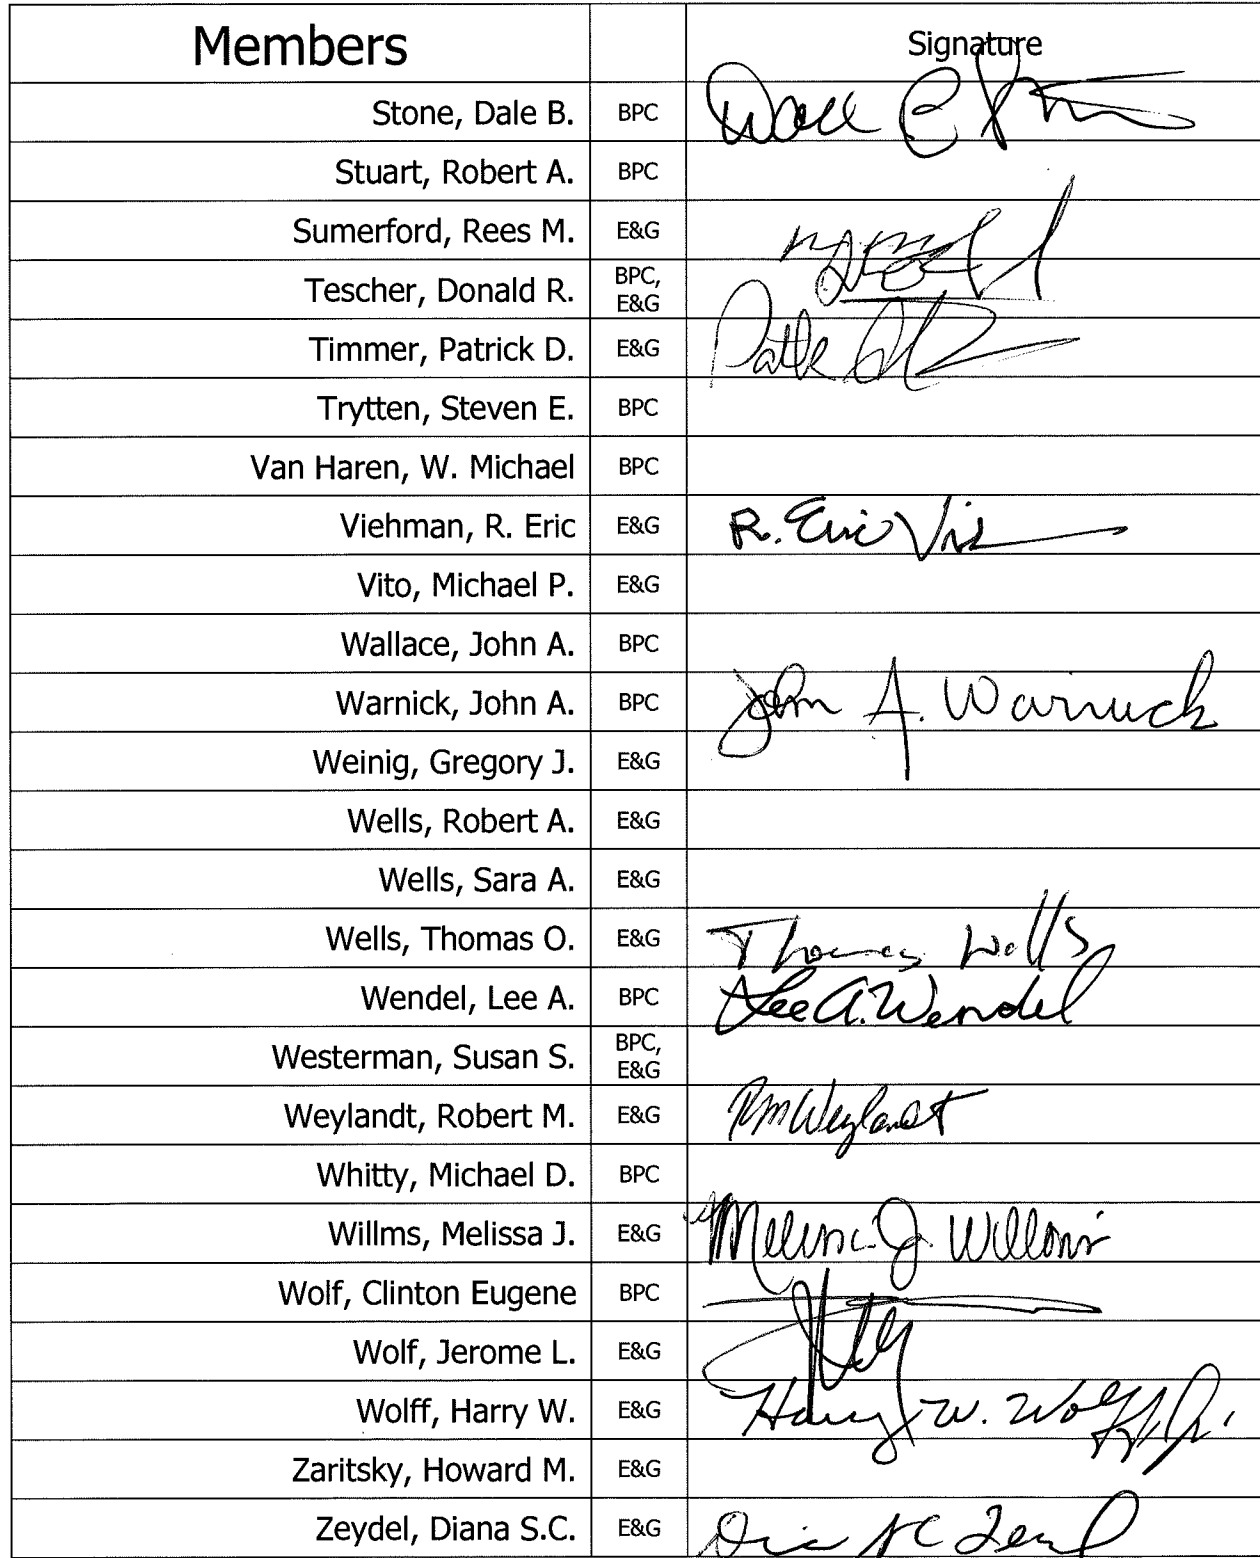 Members Signature
Stone, Dale B. BPC
Stuart, Robert A. BPC
Sumerford, Rees M. E&G
Tescher, Donald R. BPC, E&G
Timmer, Patrick D. E&G
Trytten, Steven E. BPC
Van Haren, W. Michael BPC
Viehman, R. Eric E&G R. Eric
Vito, Michael P. E&G
Wallace, John A. BPC
Warnick, John A. BPC John A. Warnick
Weinig, Gregory J. E&G
Wells, Robert A. E&G
Wells, Sara A. E&G
Wells, Thomas O. E&G Thomas Wells
Wendel, Lee A. BPC Lee A. Wendel
Westerman, Susan S. BPC, E&G
Weylandt, Robert M. E&G RM Weylandt
Whitty, Michael D. BPC
Willms, Melissa J. E&G Melissa J. Willms
Wolf, Clinton Eugene BPC
Wolf, Jerome L. E&G
Wolff, Harry W. E&G Harry W. Wolff, Jr.
Zaritsky, Howard M. E&G
Zeydel, Diana S.C. E&G